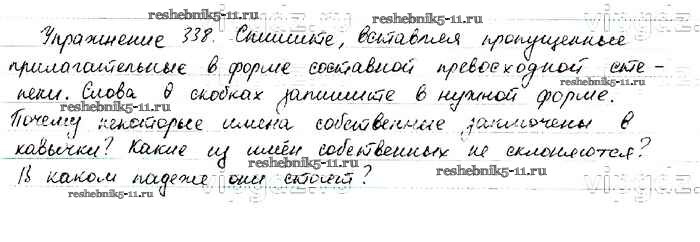 reshebnik5-11.ru
Упражнение 338. Спишите, вставляя пропущенные
прилагательные в форме составной превосходной сте-
reshebnik5-11.ru
пени. Слова в скобках запишите в нужной форме.
reshebnik5-11.ru
Почему некоторые имена собственные заключены в
reshebnik5-11.ru
кавычки? Какие из имён собственных не склоняются?
reshebnik5-11.ru
В каком падеже они стоят?
reshebnik5-11.ru